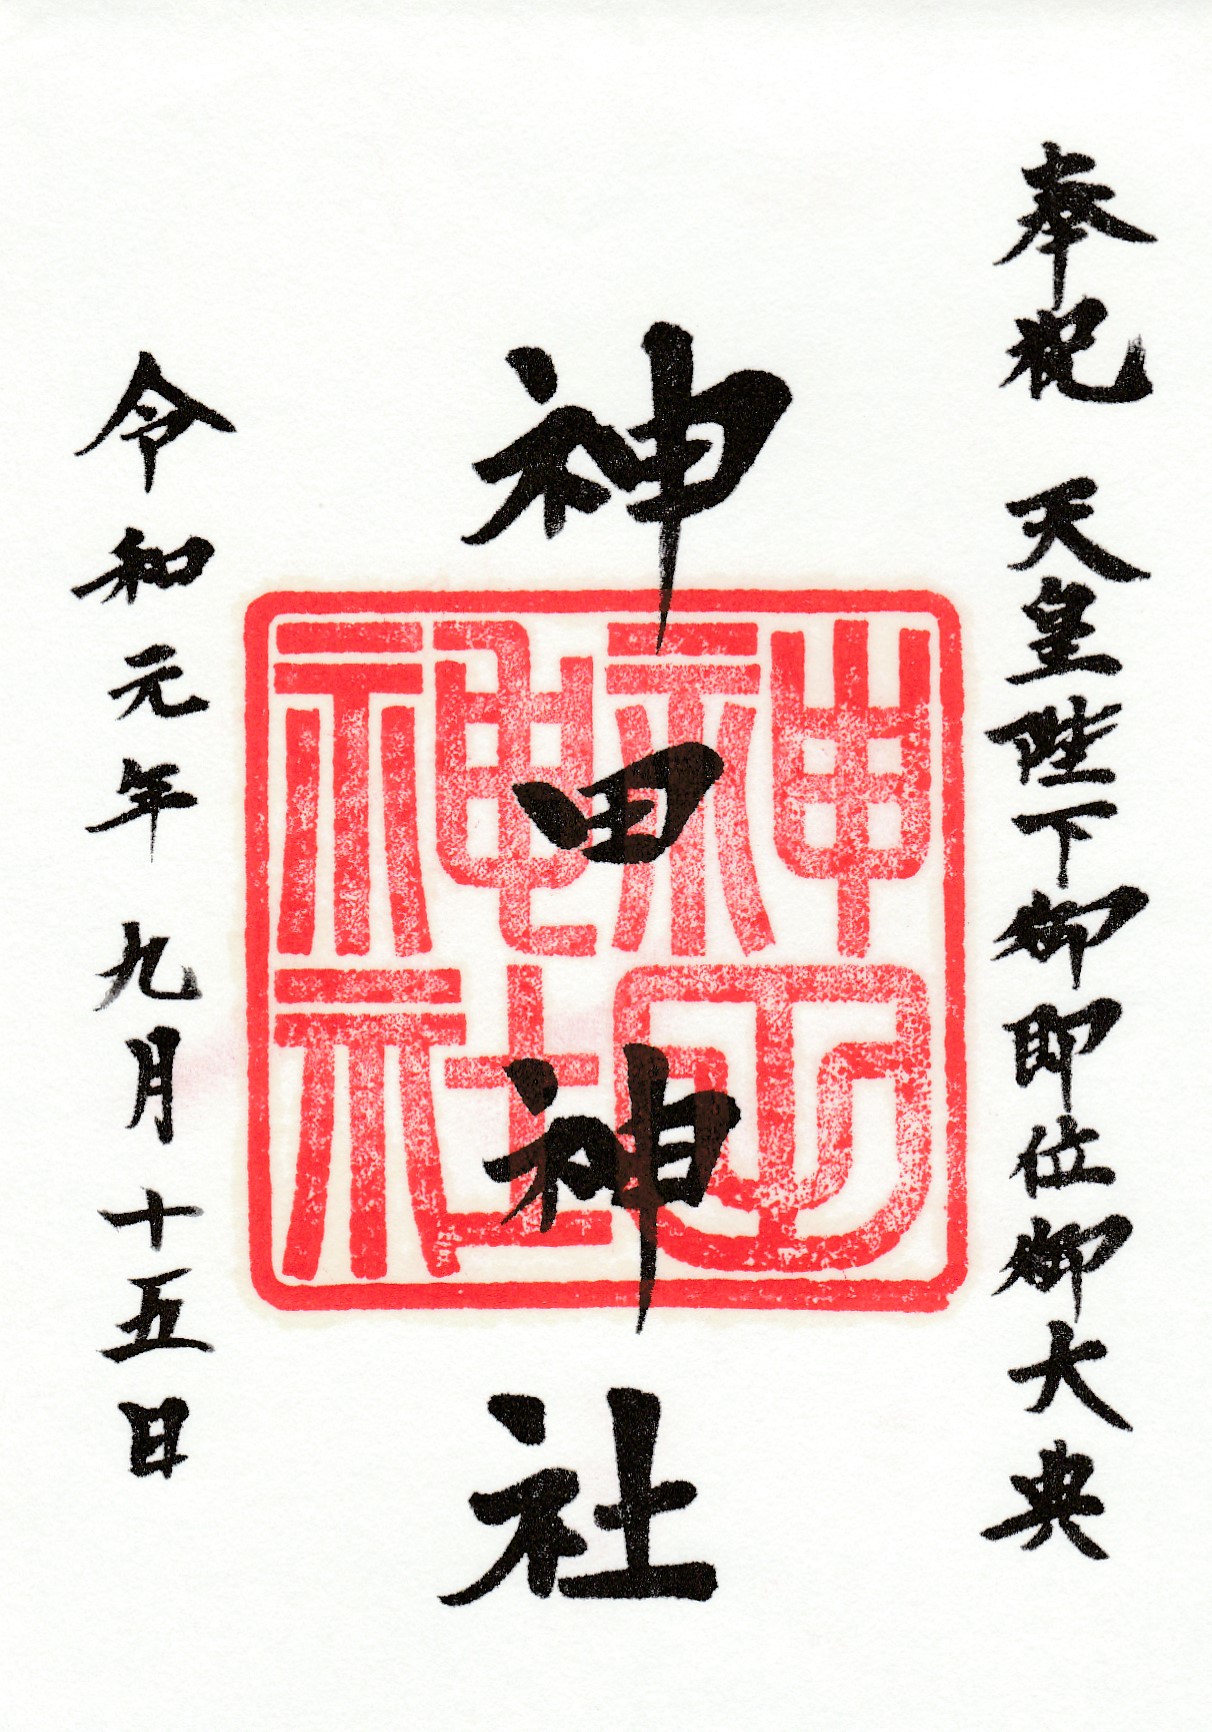 奉祝 天皇陛下御即位御大典
神田神社
神田神社
令和元年 九月十五日